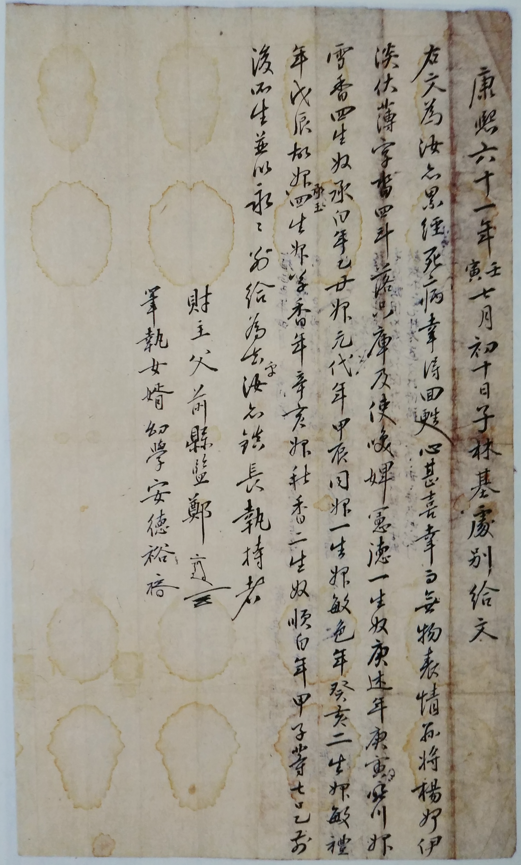 康熙六十一年壬寅七月初十日子林基處別給文
右文爲汝亦累經死病幸得回甦心甚喜幸而無物表情乙仍于將楊妌伊
淡伏薄字畓四斗落只庫及使喚婢憲德一生奴庚述年庚寅 川婢
雪香四生奴承白年乙丑婢元代年甲辰同婢一生婢敏色年癸亥二生婢敏禮
年戊辰故婢承玉四生婢 香年辛亥婢秋香二生奴順白年甲子等七口乙前
後所生並以永永別給爲去乎汝亦鎮長執持者
財主父前縣監鄭
筆執女婿幼學安德裕